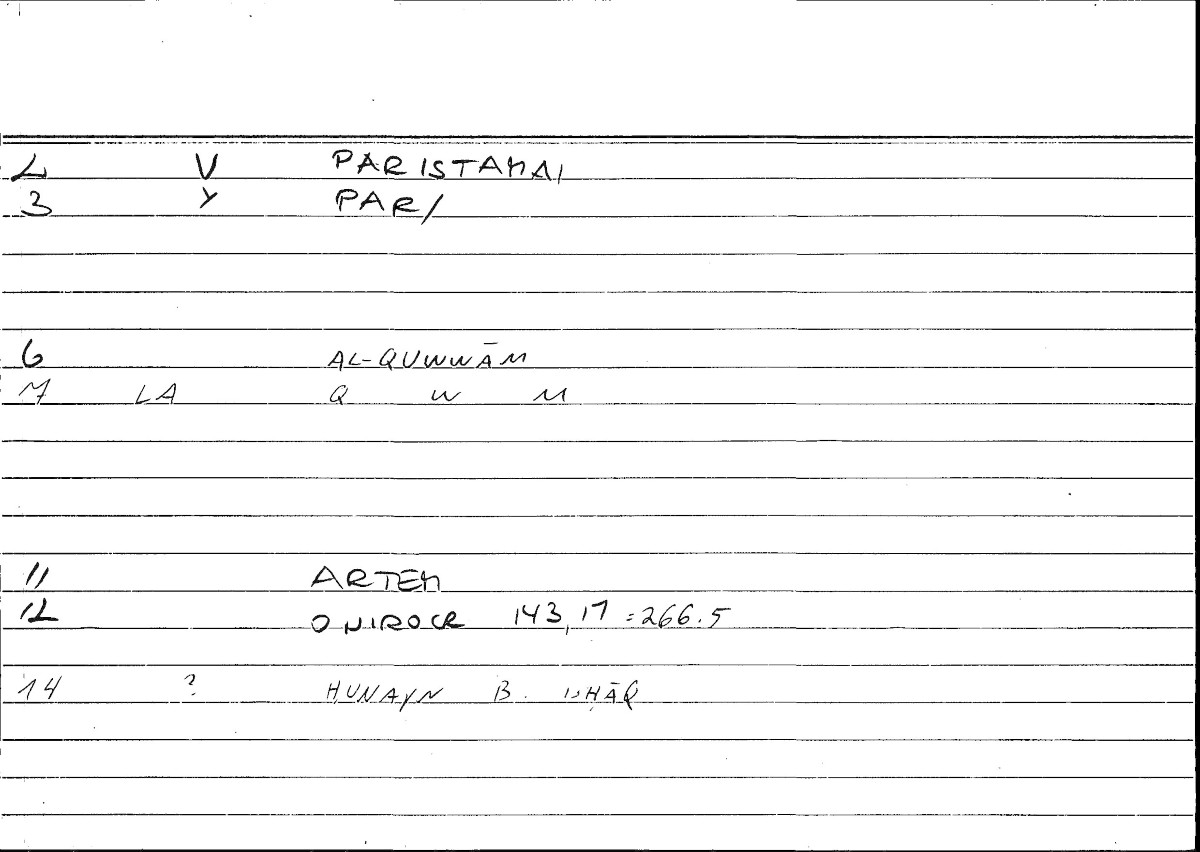 2 V PARISTAMAI
3 Y PAR/
6 AL-QUWWĀM
7 LA Q W M
11 ARTEM
12 ONIROCR 143,17 =266.5
14 ? HUNAYN B. ISḤĀQ